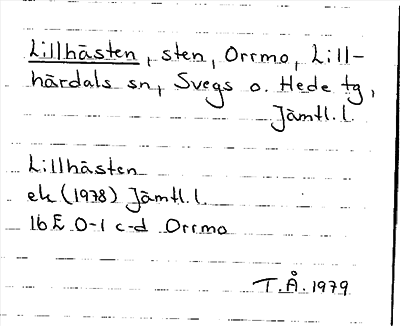 Lillhästen, sten, Orrmo, Lill-
härdals sn, Svegs o. Hede tg,
Jämtl. l.
Lillhästen
ek (1978) Jämtl. l.
16E 0-1 c-d Orrmo
T.Å. 1979